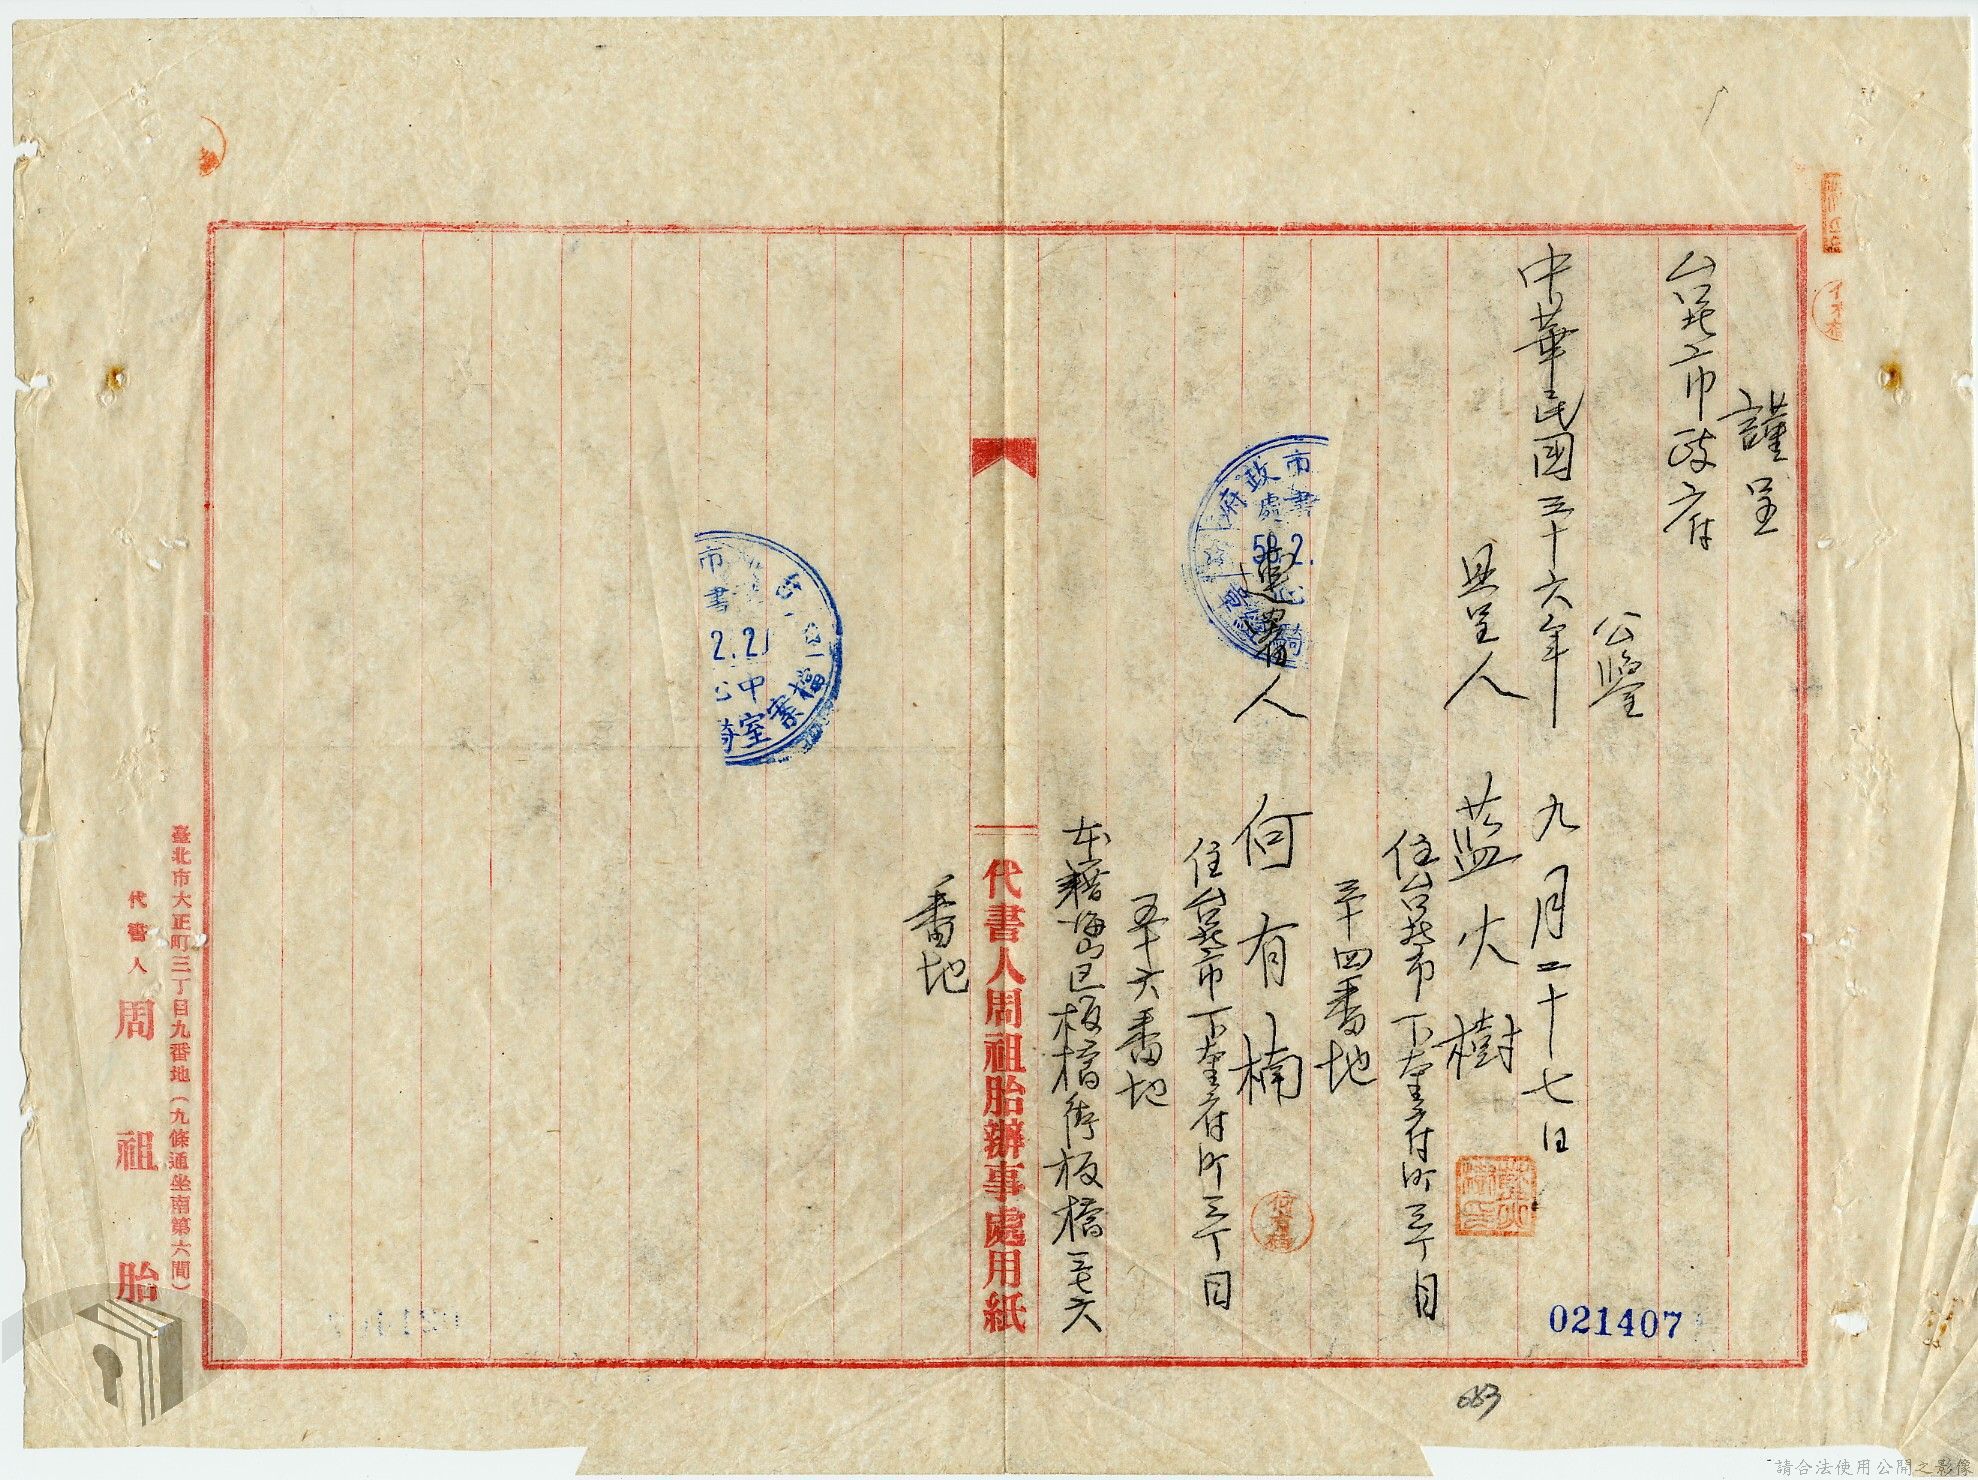 謹呈
台北市政府
公鑒
中華民國三十六年 九月二十七日
具呈人 藍火樹
住台北市下奎府町三丁目
三十四番地
連署人 何有楠
住台北市下奎府町三丁目
五十六番地
本籍海山區板橋街板橋三七六
代書人周祖胎辦事處用紙
番地
市政府
書處
58.2.
市
書
2.2
中心
檔案室
臺北市大正町三丁目九番地(九條通坐南第六間)
代書人 周祖胎
021407
683
請合法使用公開之影像